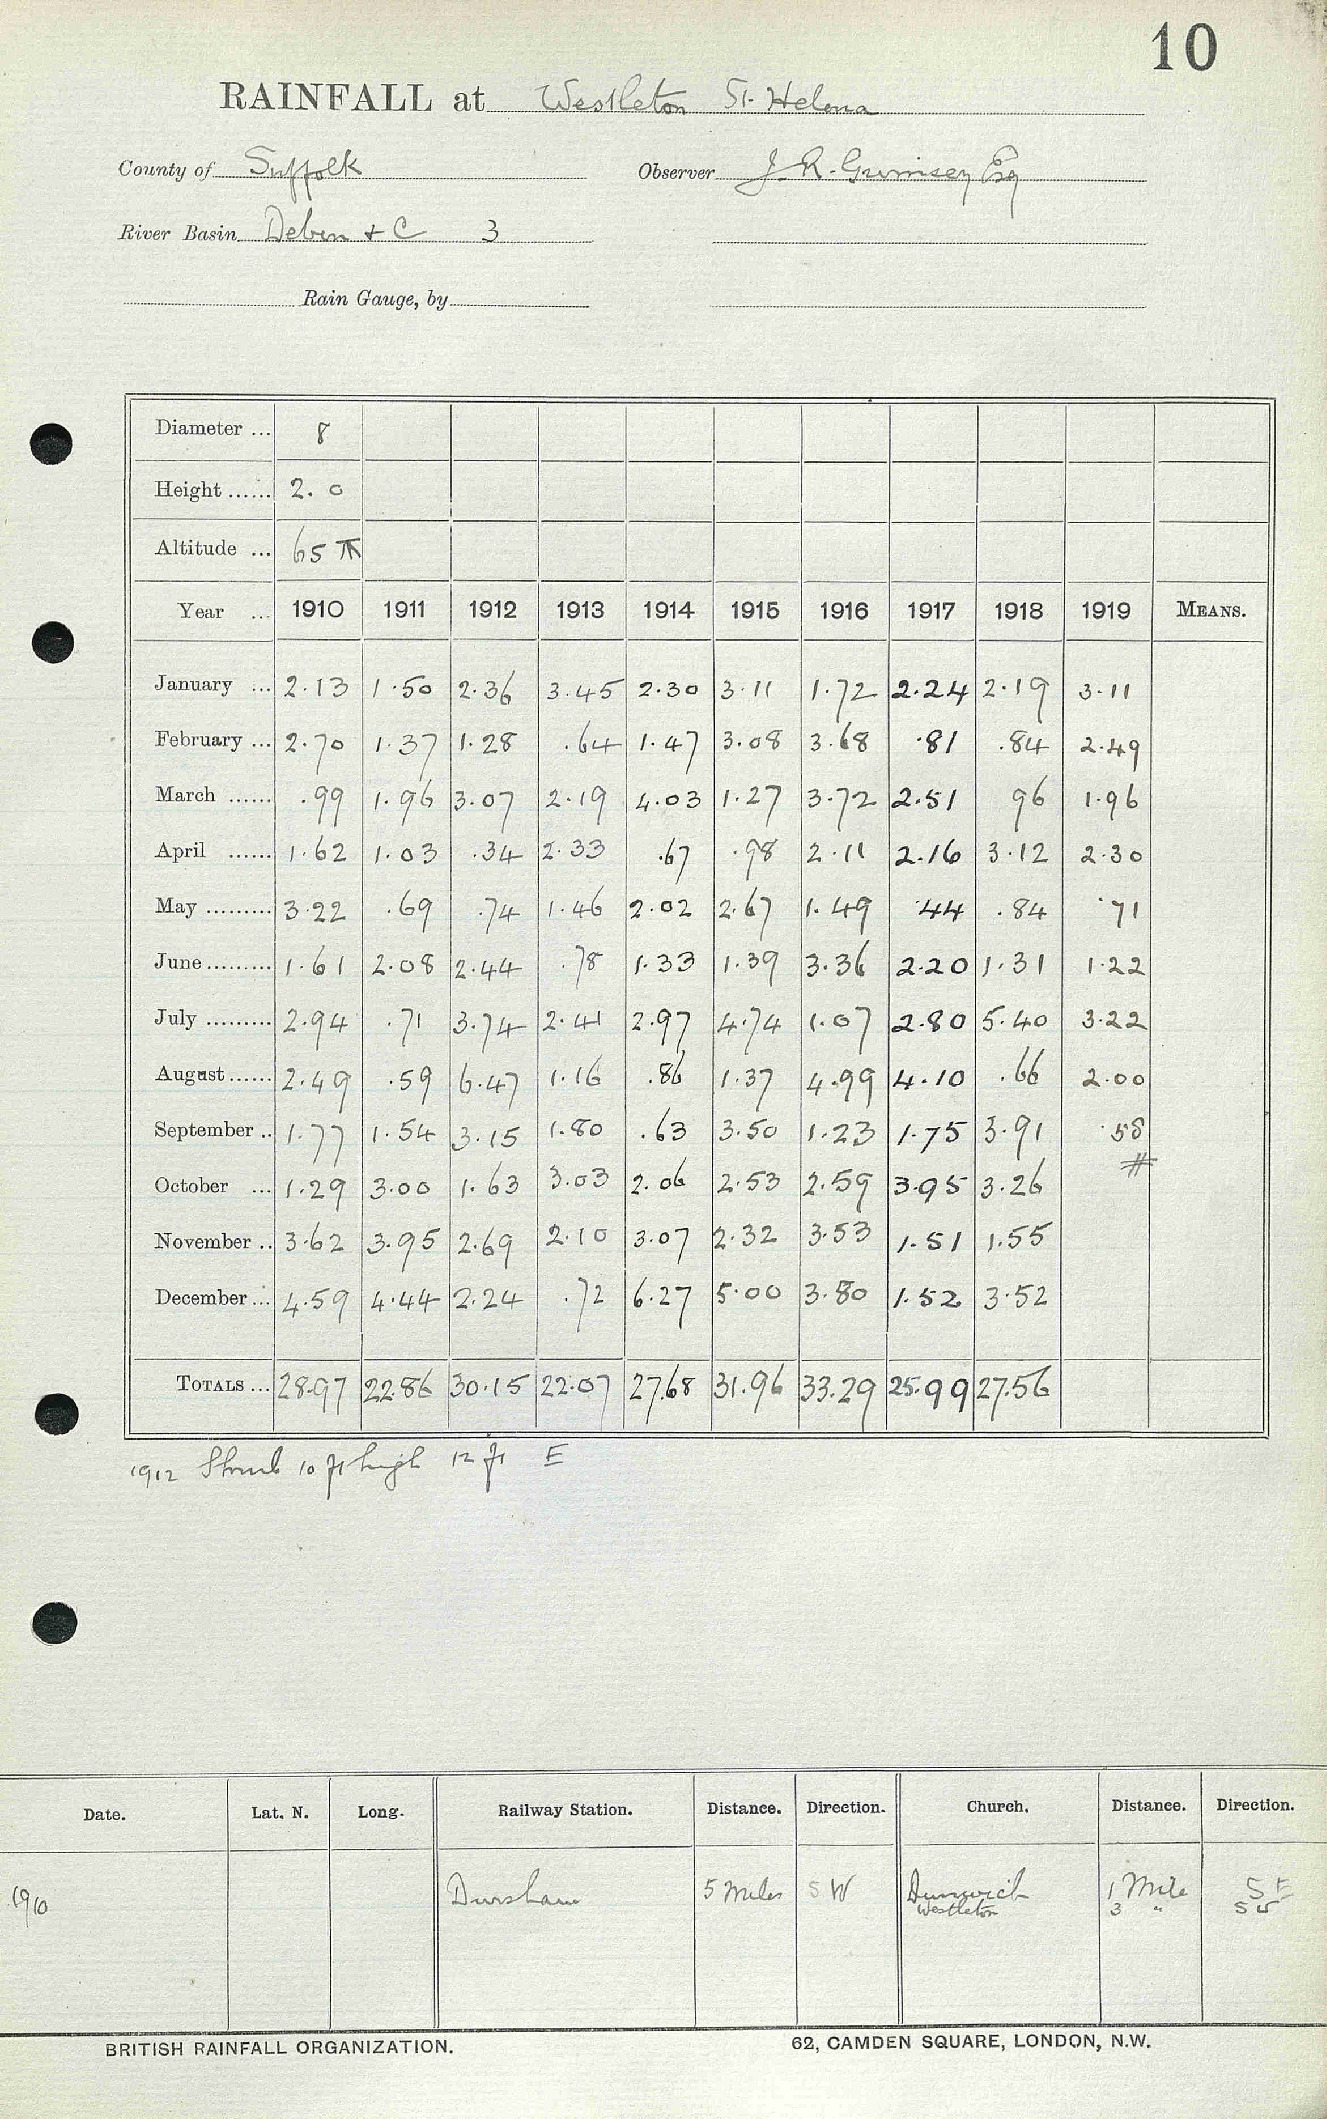 10
RAINFALL at Westleton St. Helena
County of Suffolk Observer J. R. Grimsey Esq
River Basin Deben & C 3
Rain Gauge, by
Diameter ... 8
Height ...... 2. 0
Altitude ... 65
Year ... 1910 1911 1912 1913 1914 1915 1916 1917 1918 1919 MEANS.
January ... 2.13 1.50 2.36 3.45 2.30 3.11 1.72 2.24 2.19 3.11
February ... 2.70 1.37 1.28 .64 1.47 3.08 3.68 .81 .84 2.49
March ...... .99 1.96 3.07 2.19 4.03 1.27 3.72 2.51 96 1.96
April ...... 1.62 1.03 .34 2.33 .67 .98 2.11 2.16 3.12 2.30
May ......... 3.22 .69 .74 1.46 2.02 2.67 1.49 .44 .84 .71
June ......... 1.61 2.08 2.44 .78 1.33 1.39 3.36 2.20 1.31 1.22
July ......... 2.94 .71 3.74 2.41 2.97 4.74 1.07 2.80 5.40 3.22
August ...... 2.49 .59 6.47 1.16 .86 1.37 4.99 4.10 .66 2.00
September .. 1.77 1.54 3.15 1.80 .63 3.50 1.23 1.75 3.91 .58
October ... 1.29 3.00 1.63 3.03 2.06 2.53 2.59 3.95 3.26 #
November .. 3.62 3.95 2.69 2.10 3.07 2.32 3.53 1.51 1.55
December ... 4.59 4.44 2.24 .72 6.27 5.00 3.80 1.52 3.52
TOTALS ... 28.97 22.86 30.15 22.07 27.68 31.96 33.29 25.99 27.56
1912 Shrub 10 ft high 12 ft E
Date. Lat. N. Long. Railway Station. Distance. Direction. Church. Distance. Direction.
1910 Darsham 5 Miles S W Dunwich 1 Mile S E
Westleton 3 " S W
BRITISH RAINFALL ORGANIZATION. 62, CAMDEN SQUARE, LONDON, N.W.